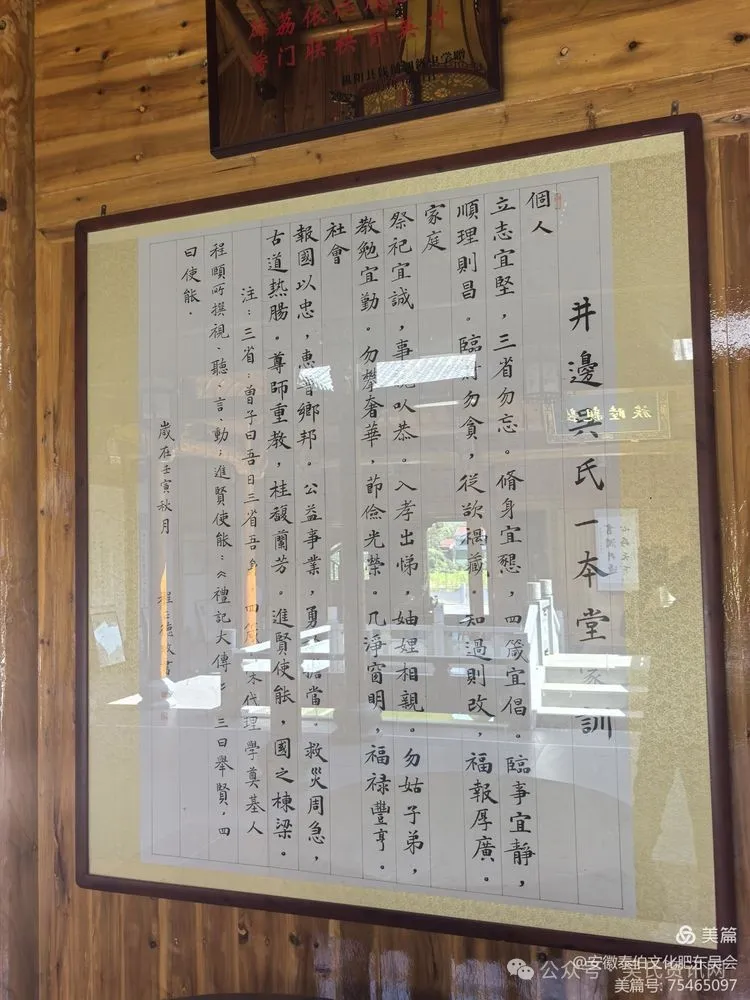 井邊吳氏一本堂家訓
個人
立志宜堅，三省勿忘。脩身宜懇，四箴宜倡。臨事宜靜，
順理則昌。臨財勿貪，從欲禍藏。知過則改，福報厚廣。
家庭
祭祀宜誠，事親以恭。入孝出悌，妯娌相親。勿姑子弟，
教勉宜勤。勿攀奢華，節儉光榮。几淨窗明，福禄豐亨。
社會
報國以忠，惠普鄉邦。公益事業，勇於擔當。救災周急，
古道熱腸。尊師重教，桂馥蘭芳。進賢使能，國之棟梁。
注：三省：曾子曰吾日三省吾身 四箴 宋代理學奠基人
程頤所撰視、聽、言、動；進賢使能：《禮記大傳》：三曰舉賢，四
曰使能.
歲在壬寅秋月
美篇
@安徽泰伯文化肥东吴会
公众号 吴氏资讯网
美篇号: 75465097